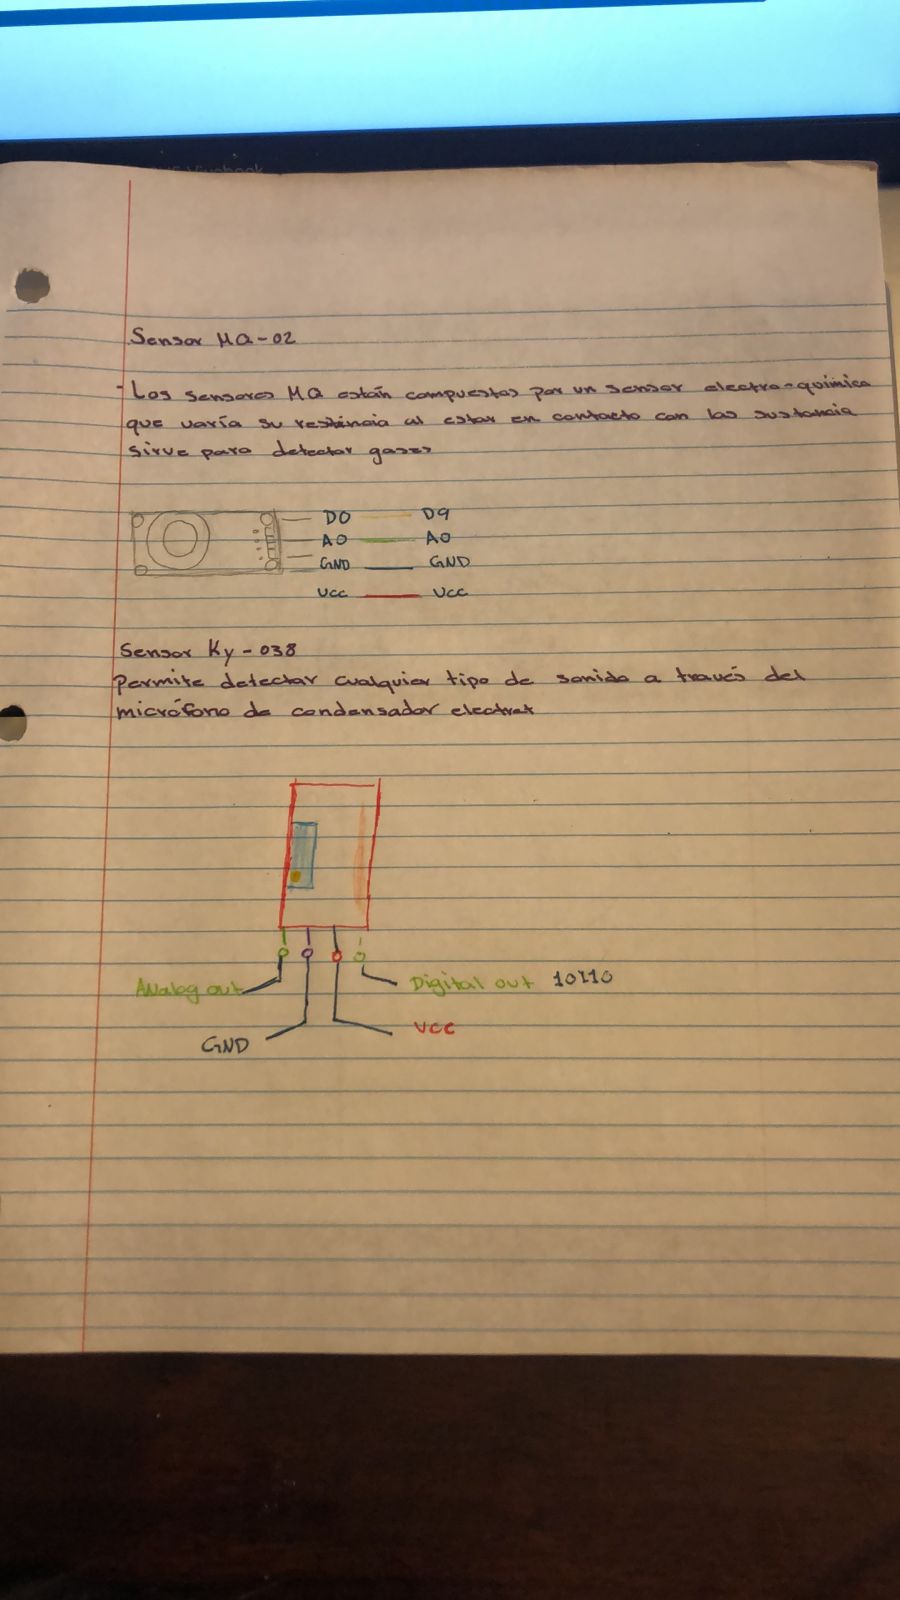 Sensor MQ-02
- Los sensores MQ están compuestos por un sensor electro-química
que varía su resistincia al estar en contacto con las sustancia
sirve para detectar gases
D0 D9
A0 A0
GND GND
VCC VCC
Sensor Ky-038
Permite detectar cualquier tipo de sonido a través del
micrófono de condensador electret
Analog out Digital out 10110
GND VCC